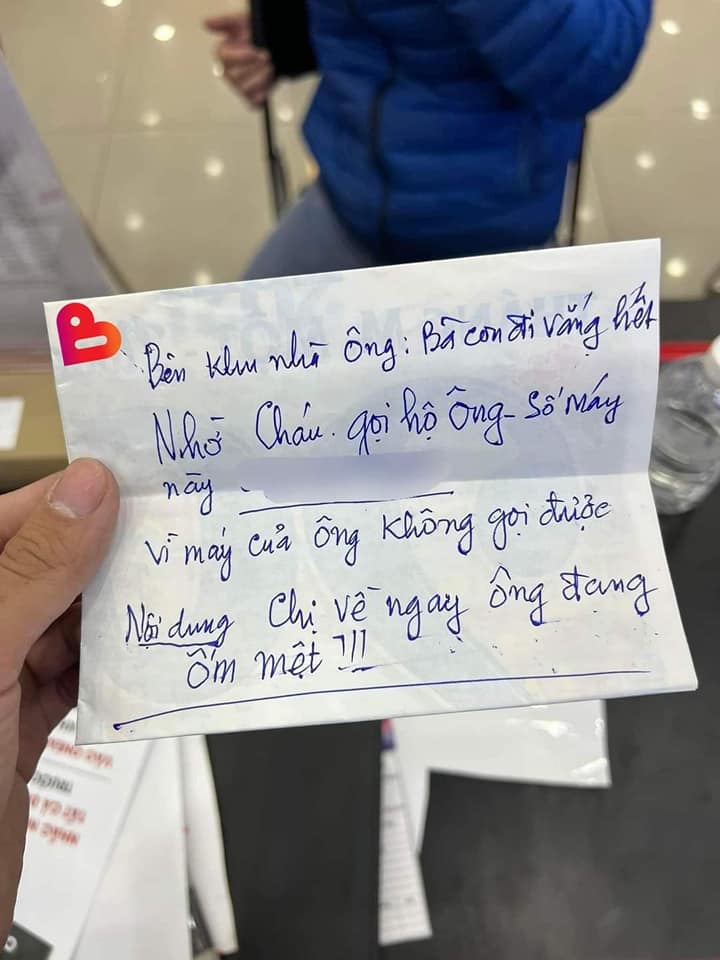 Bên khu nhà Ông: Bà con đi vắng hết
Nhờ Cháu gọi hộ Ông - Số máy
này
vì máy của Ông không gọi được
Nội dung Chị về ngay Ông đang
Ốm mệt !!!